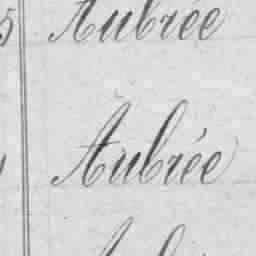 5 Aubrée
Aubrée